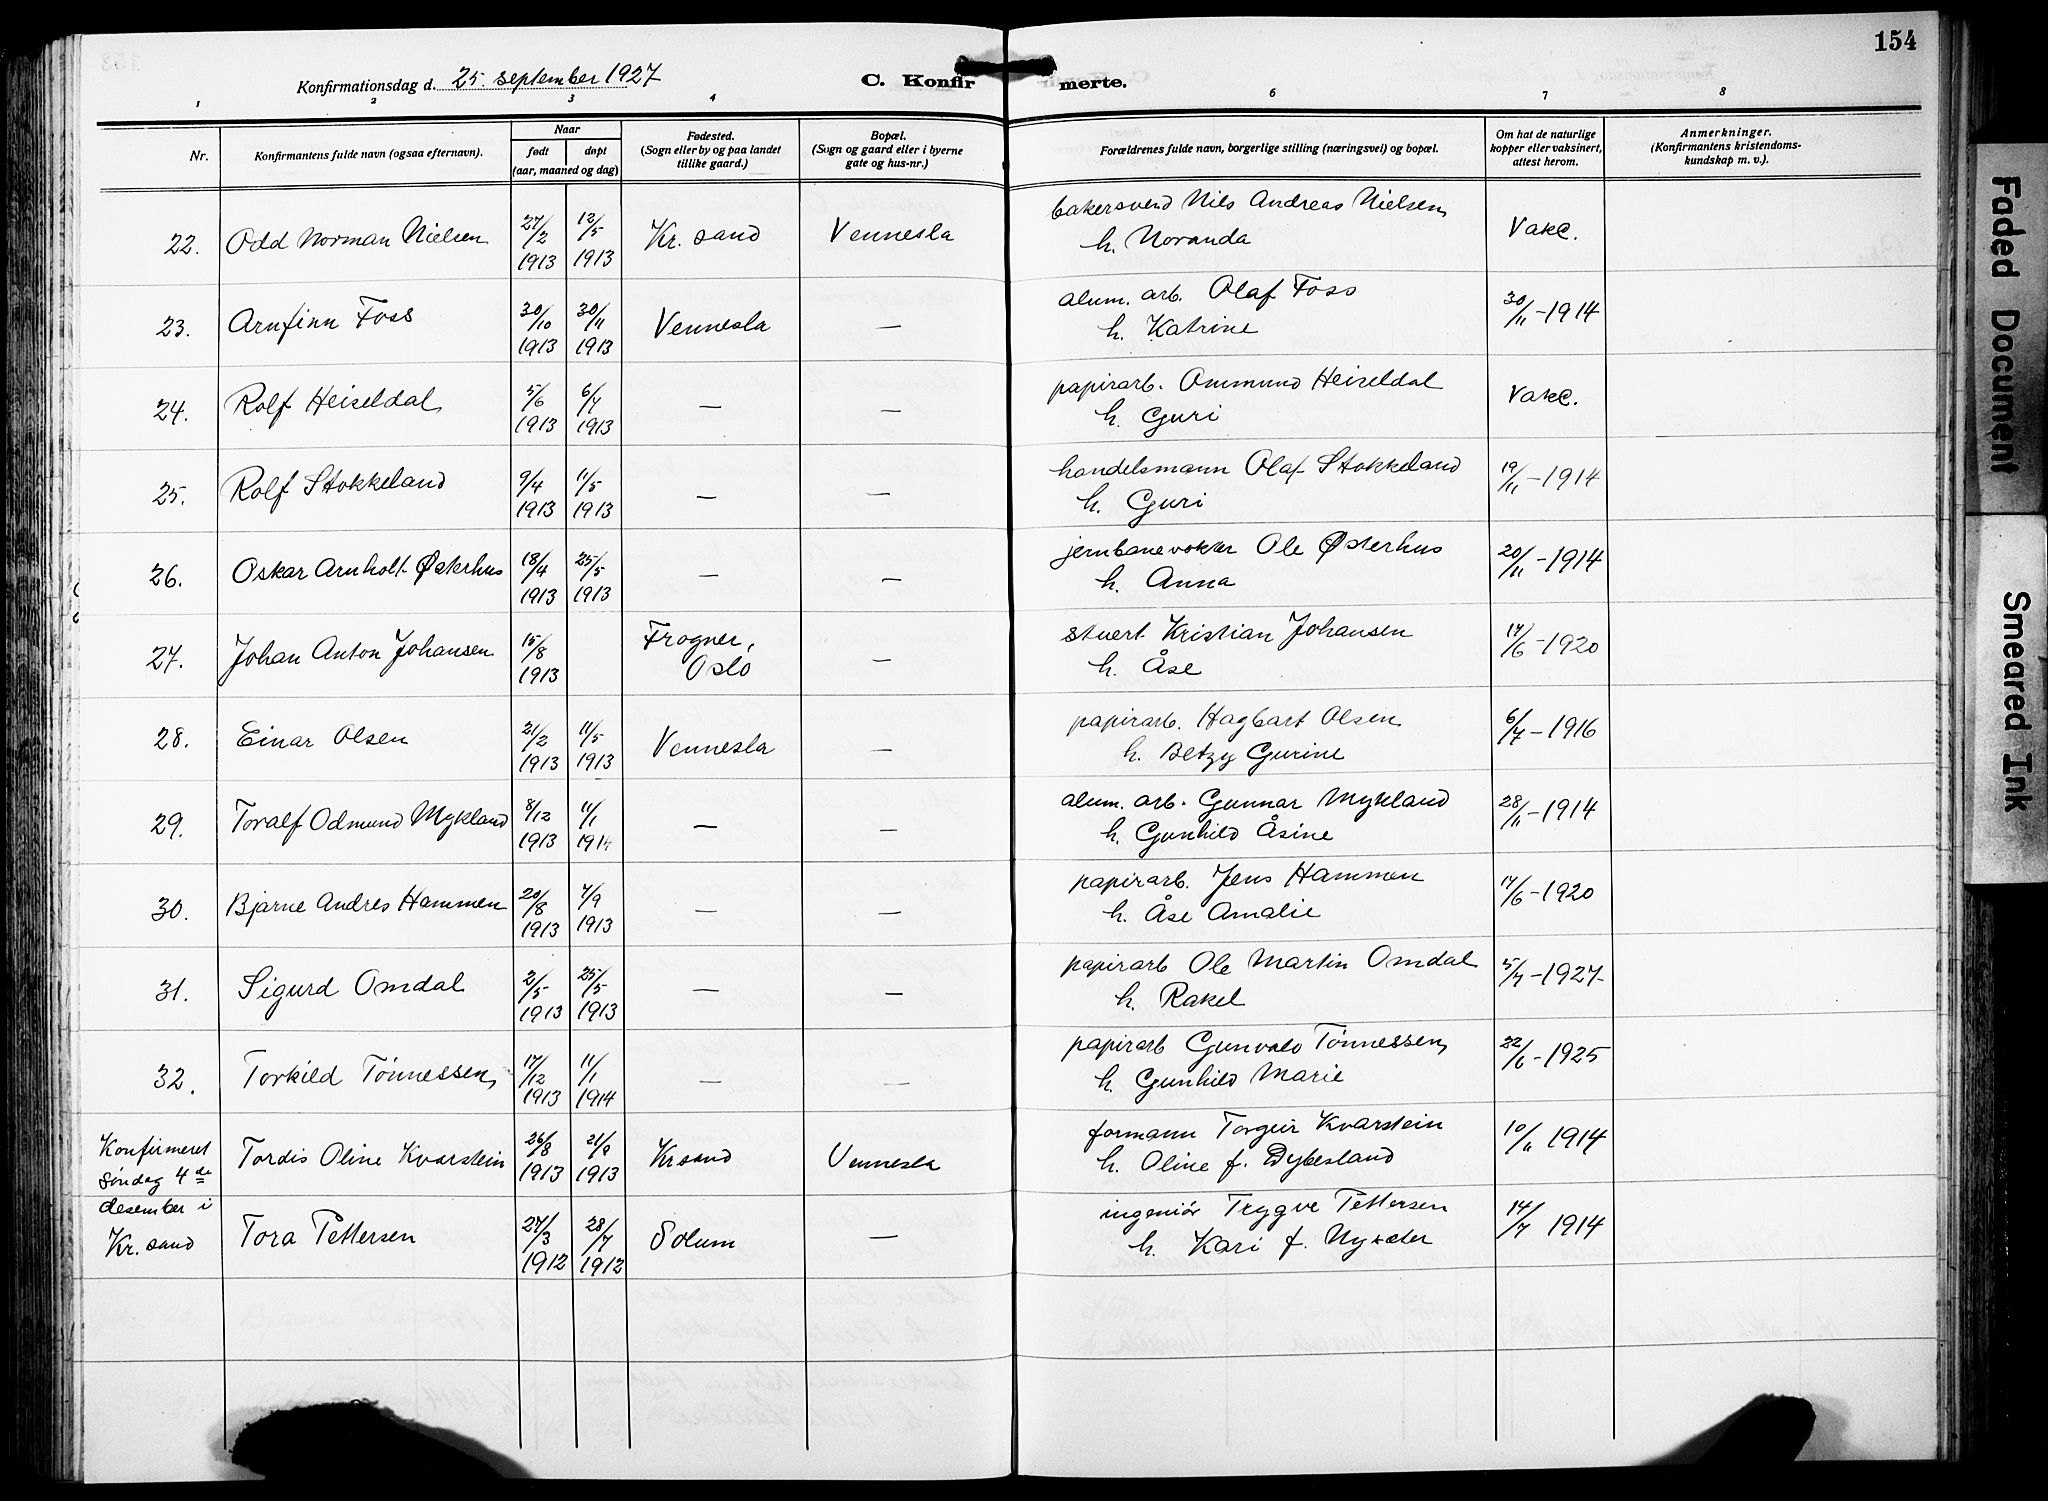 154
Konfirmationsdag d. 25. september 1927
C. Konfir merte.
1 2 3 4 6 7 8
Nr.
Konfirmantens fulde navn (ogsaa efternavn).
Naar
født døpt
(aar, maaned og dag)
Fødested.
(Sogn eller by og paa landet
tillike gaard.)
Bopæl.
(Sogn og gaard eller i byerne
gate og hus-nr.)
Forældrenes fulde navn, borgerlige stilling (næringsvei) og bopæl.
Om hat de naturlige
kopper eller vaksinert,
attest herom.
Anmerkninger.
(Konfirmantens kristendoms-
kundskap m. v.).
22. Odd Norman Nielsen 27/2 1913 12/5 1913 Kr. sand Vennesla bakersvend Nils Andreas Nielsen Vakc.
h. Noranda
23. Arnfinn Foss 30/10 1913 30/11 1913 Vennesla — alum. arb. Olaf Foss 30/11 - 1914
h. Katrine
24. Rolf Heiseldal 5/6 1913 6/7 1913 — — papirarb. Ommund Heiseldal Vakc.
h. Guri
25. Rolf Stokkeland 9/4 1913 11/5 1913 — — handelsmann Olaf Stokkeland 19/11 - 1914
h. Guri
26. Oskar Arnholt Østerhus 18/4 1913 25/5 1913 — — jernbanevokter Ole Østerhus 20/11 - 1914
h. Anna
27. Johan Anton Johansen 15/8 1913 Frogner, Oslo — stuert Kristian Johansen 17/6 - 1920
h. Åse
28. Einar Olsen 21/2 1913 11/5 1913 Vennesla — papirarb. Hagbart Olsen 6/7 - 1916
h. Betzy Gurine
29. Toralf Odmund Mykland 8/12 1913 11/1 1914 — — alum. arb. Gunnar Mykland 28/11 - 1914
h. Gunhild Åsine
30. Bjarne Andres Hammen 20/8 1913 7/9 1913 — — papirarb. Jens Hammen 17/6 - 1920
h. Åse Amalie
31. Sigurd Omdal 2/5 1913 25/5 1913 — — papirarb Ole Martin Omdal 5/7 - 1927
h. Rakel
32. Torkild Tønnessen 17/12 1913 11/1 1914 — — papirarb Gunvald Tønnessen 22/6 - 1925
h. Gunhild Marie
Konfirmeret
søndag 4de
desember i
Kr. sand
Tordis Oline Kvarstein 26/8 1913 21/9 1913 Kr sand Vennesla formann Torgeir Kvarstein 10/11 1914
h. Oline f. Dybesland
Tora Pettersen 27/3 1912 28/7 1912 Solum — ingeniør Trygve Pettersen 14/7 1914
h. Kari f. Nysæter
Faded Document
Smeared Ink